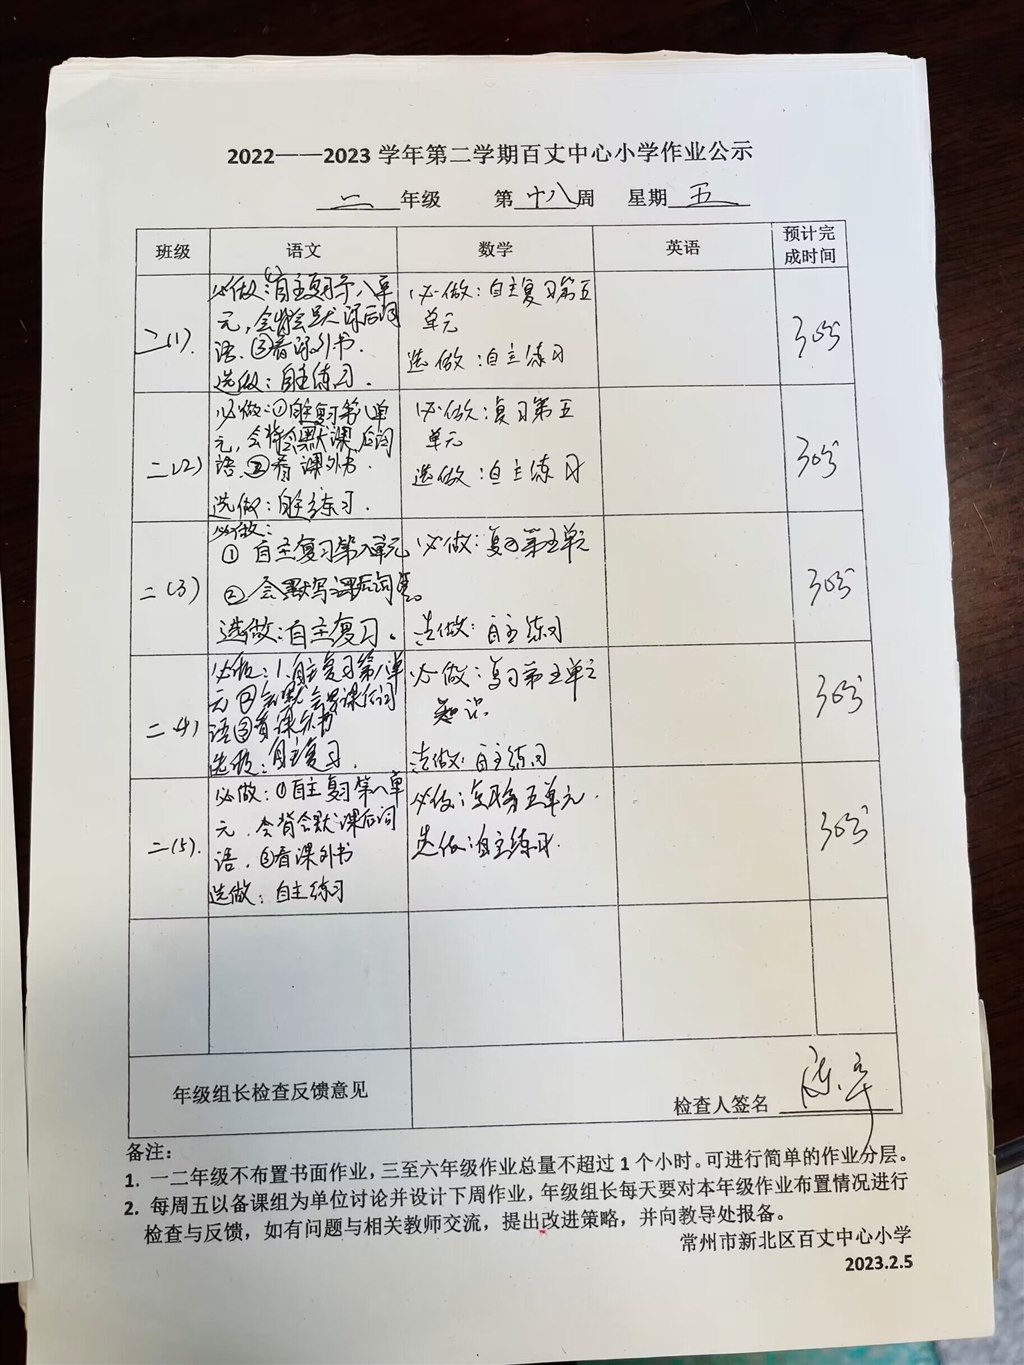 2022——2023 学年第二学期百丈中心小学作业公示
二 年级 第 十八 周 星期 五
班级 语文 数学 英语 预计完成时间
二(1)
必做:①自主复习第八单
元,会背会默课后词
语.②看课外书.
选做:自主练习.
必做:自主复习第五
单元
选做:自主练习
30分
二(2)
必做:①自主复习第八单
元,会背会默课后词
语.②看课外书.
选做:自主练习.
必做:复习第五
单元
选做:自主练习
30分
二(3)
必做:
①自主复习第八单元
②会默写课后词语。
选做:自主复习.
必做:复习第五单元
选做:自主练习
30分
二(4)
必做:1.自主复习第八单
元②会默会背课后词
语③看课外书
选做:自主复习.
必做:复习第五单元
知识.
选做:自主练习
30分
二(5).
必做:①自主复习第八单
元.会背会默课后词
语.②看课外书
选做:自主练习
必做:复习第五单元.
选做:自主练习.
30分
年级组长检查反馈意见
检查人签名
备注:
1. 一二年级不布置书面作业,三至六年级作业总量不超过 1 个小时。可进行简单的作业分层。
2. 每周五以备课组为单位讨论并设计下周作业,年级组长每天要对本年级作业布置情况进行
检查与反馈,如有问题与相关教师交流,提出改进策略,并向教导处报备。
常州市新北区百丈中心小学
2023.2.5